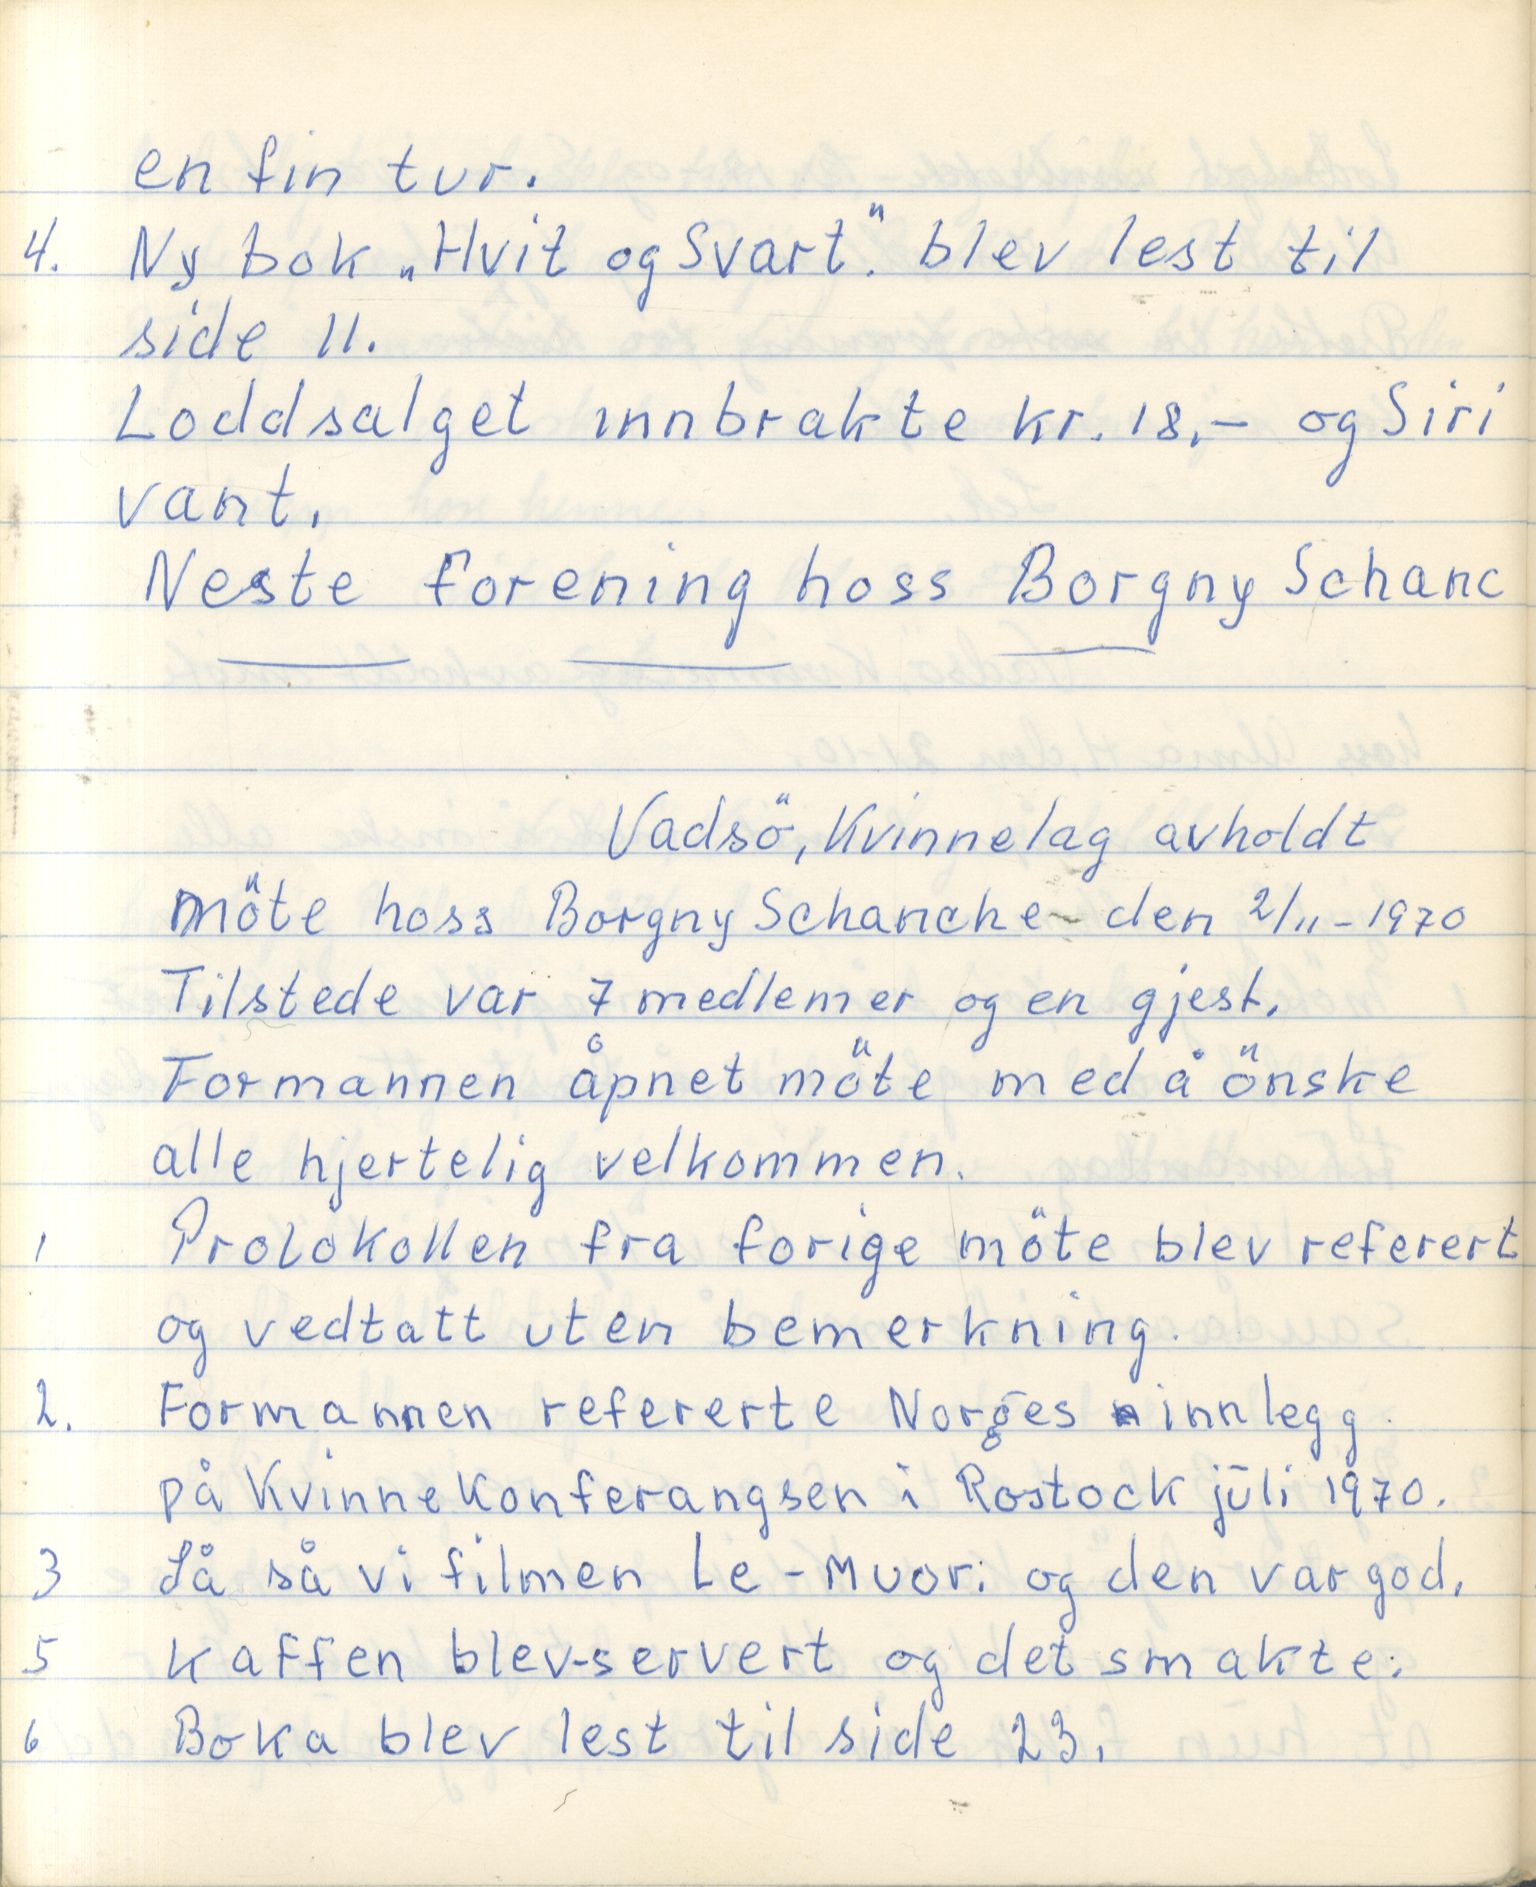 en fin tur.
4. Ny bok „Hvit og Svart." blev lest til
side 11.
Loddsalget innbrakte kr. 18,- og Siri
vant.
Neste forening hoss Borgny Schanc
Vadsö, Kvinnelag avholdt
möte hoss Borgny Schanche den 2/11-1970
Tilstede var 7 medlemer og en gjest.
Formannen åpnet möte med å önske
alle hjertelig velkommen.
1 Protokollen fra forige möte blev referert
og vedtatt uten bemerkning.
2. Formannen refererte Norges innlegg
på Kvinnekonferangsen i Rostock jūli 1970.
3 Så så vi filmen Le-Muori og den var god.
5 Kaffen blev servert og det smakte.
6 Boka blev lest til side 23.